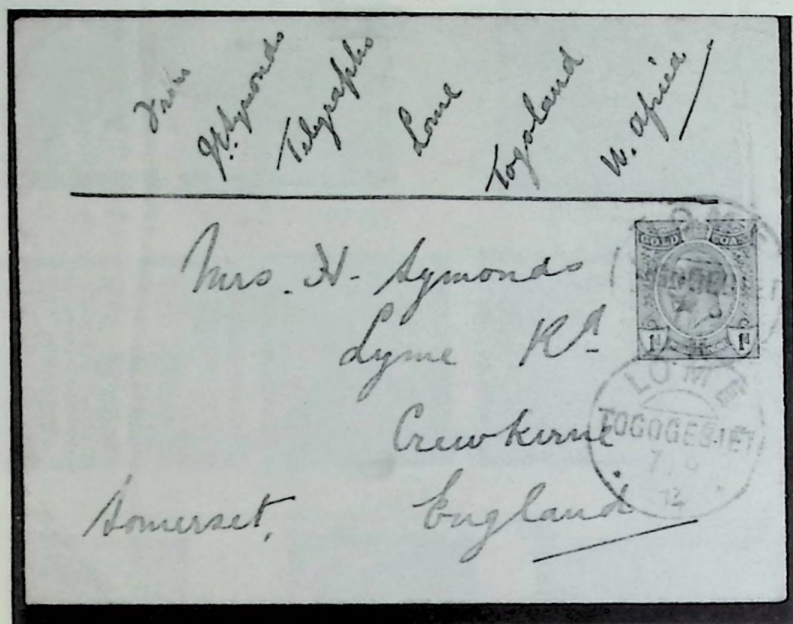 From
H. Symonds
Telegraphs
Lome
Togoland
W. Africa
Mrs. H. Symonds
Lyme Rd
Crewkerne
Somerset, England
GOLD COAST
1d 1d
LOME
LOME
TOGOGEBIET